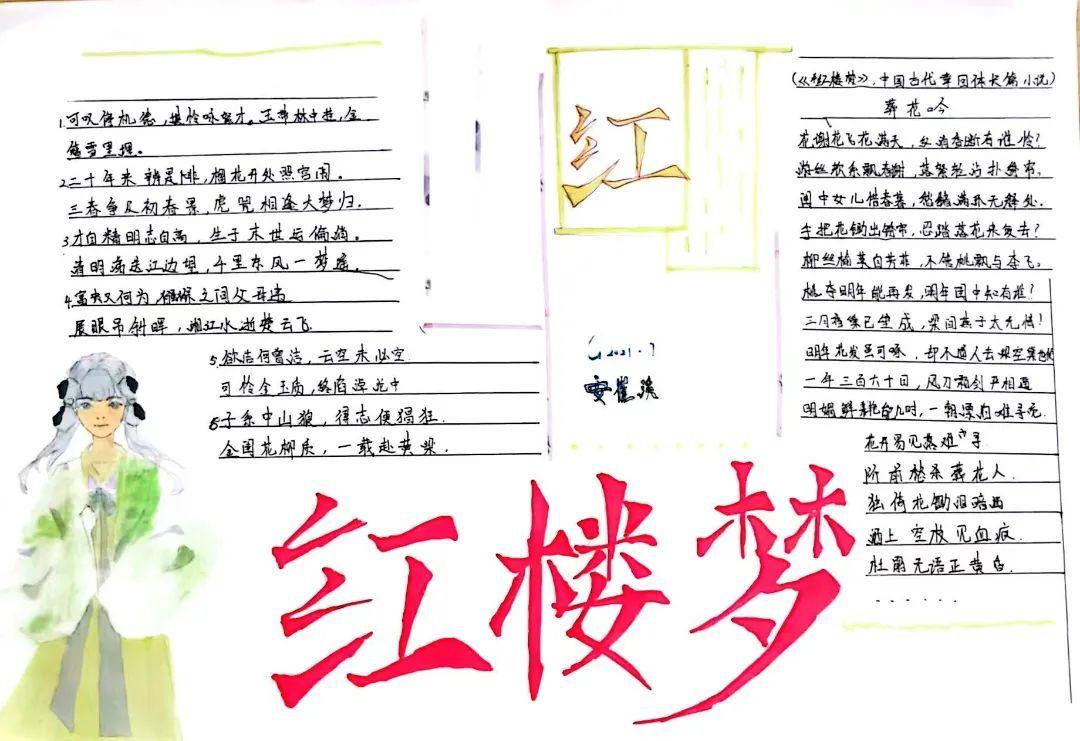 1.可叹停机德，堪怜咏絮才。玉带林中挂，金
簪雪里埋。
2.二十年来辨是非，榴花开处照宫闱。
三春争及初春景，虎兕相逢大梦归.
3.才自精明志自高，生于末世运偏消。
清明涕送江边望，千里东风一梦遥.
4.富贵又何为，襁褓之间父母违
展眼吊斜晖，湘江水逝楚云飞.
5.欲洁何曾洁，云空未必空.
可怜金玉质，终陷淖泥中
6.子系中山狼，得志便猖狂.
金闺花柳质，一载赴黄粱.
红
2021.7
红楼梦
(《红楼梦》.中国古代章回体长篇小说)
葬花吟
花谢花飞花满天，红消香断有谁怜？
游丝软系飘春榭，落絮轻沾扑绣帘.
闺中女儿惜春暮，愁绪满怀无释处.
手把花锄出绣帘，忍踏落花来复去？
柳丝榆荚自芳菲，不管桃飘与李飞.
桃李明年能再发，明年闺中知有谁？
三月香巢已垒成，梁间燕子太无情！
明年花发虽可啄，却不道人去梁空巢也倾
一年三百六十日，风刀霜剑严相逼
明媚鲜艳能几时，一朝漂泊难寻觅.
花开易见落难寻
阶前愁杀葬花人.
独倚花锄泪暗洒
洒上空枝见血痕.
杜鹃无语正黄昏.
......